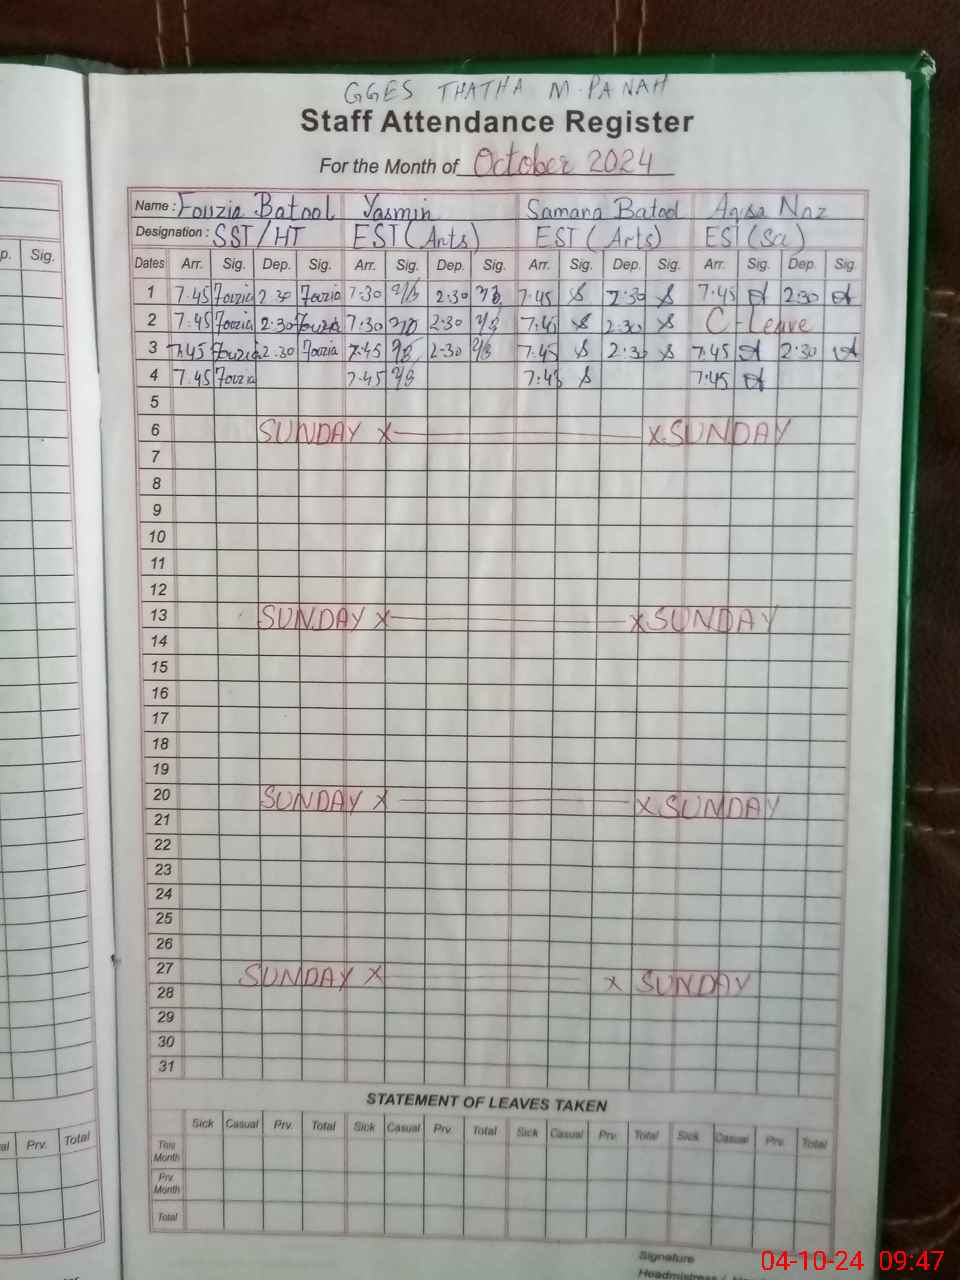 GGES THATHA M. PANAH
Staff Attendance Register
For the Month of October 2024
Name : Fouzia Batool Yasmin Samana Batool Aqisa Naz
Designation : SST/HT EST (Arts) EST (Arts) EST (Sci)
p. Sig. Dates Arr. Sig. Dep. Sig. Arr. Sig. Dep. Sig. Arr. Sig. Dep. Sig. Arr. Sig. Dep. Sig.
1 7.45 Fouzia 2.30 Fouzia 7.30 2:30 7:45 2:30 7:45 2:30
2 7.45 Fouzia 2.30 Fouzia 7.30 2:30 7:45 2:30 C-Leave
3 7.45 Fouzia 2.30 Fouzia 7.45 2:30 7:45 2:30 7:45 2:30
4 7.45 Fouzia 7.45 7:45 7:45
5
6 SUNDAY x x SUNDAY
7
8
9
10
11
12
13 SUNDAY x x SUNDAY
14
15
16
17
18
19
20 SUNDAY x x SUNDAY
21
22
23
24
25
26
27 SUNDAY x x SUNDAY
28
29
30
31
STATEMENT OF LEAVES TAKEN
al Prv. Total Sick Casual Prv. Total Sick Casual Prv. Total Sick Casual Prv. Total Sick Casual Prv. Total
This Month
Prv. Month
Total
Signature
Headmistress /
04-10-24 09:47